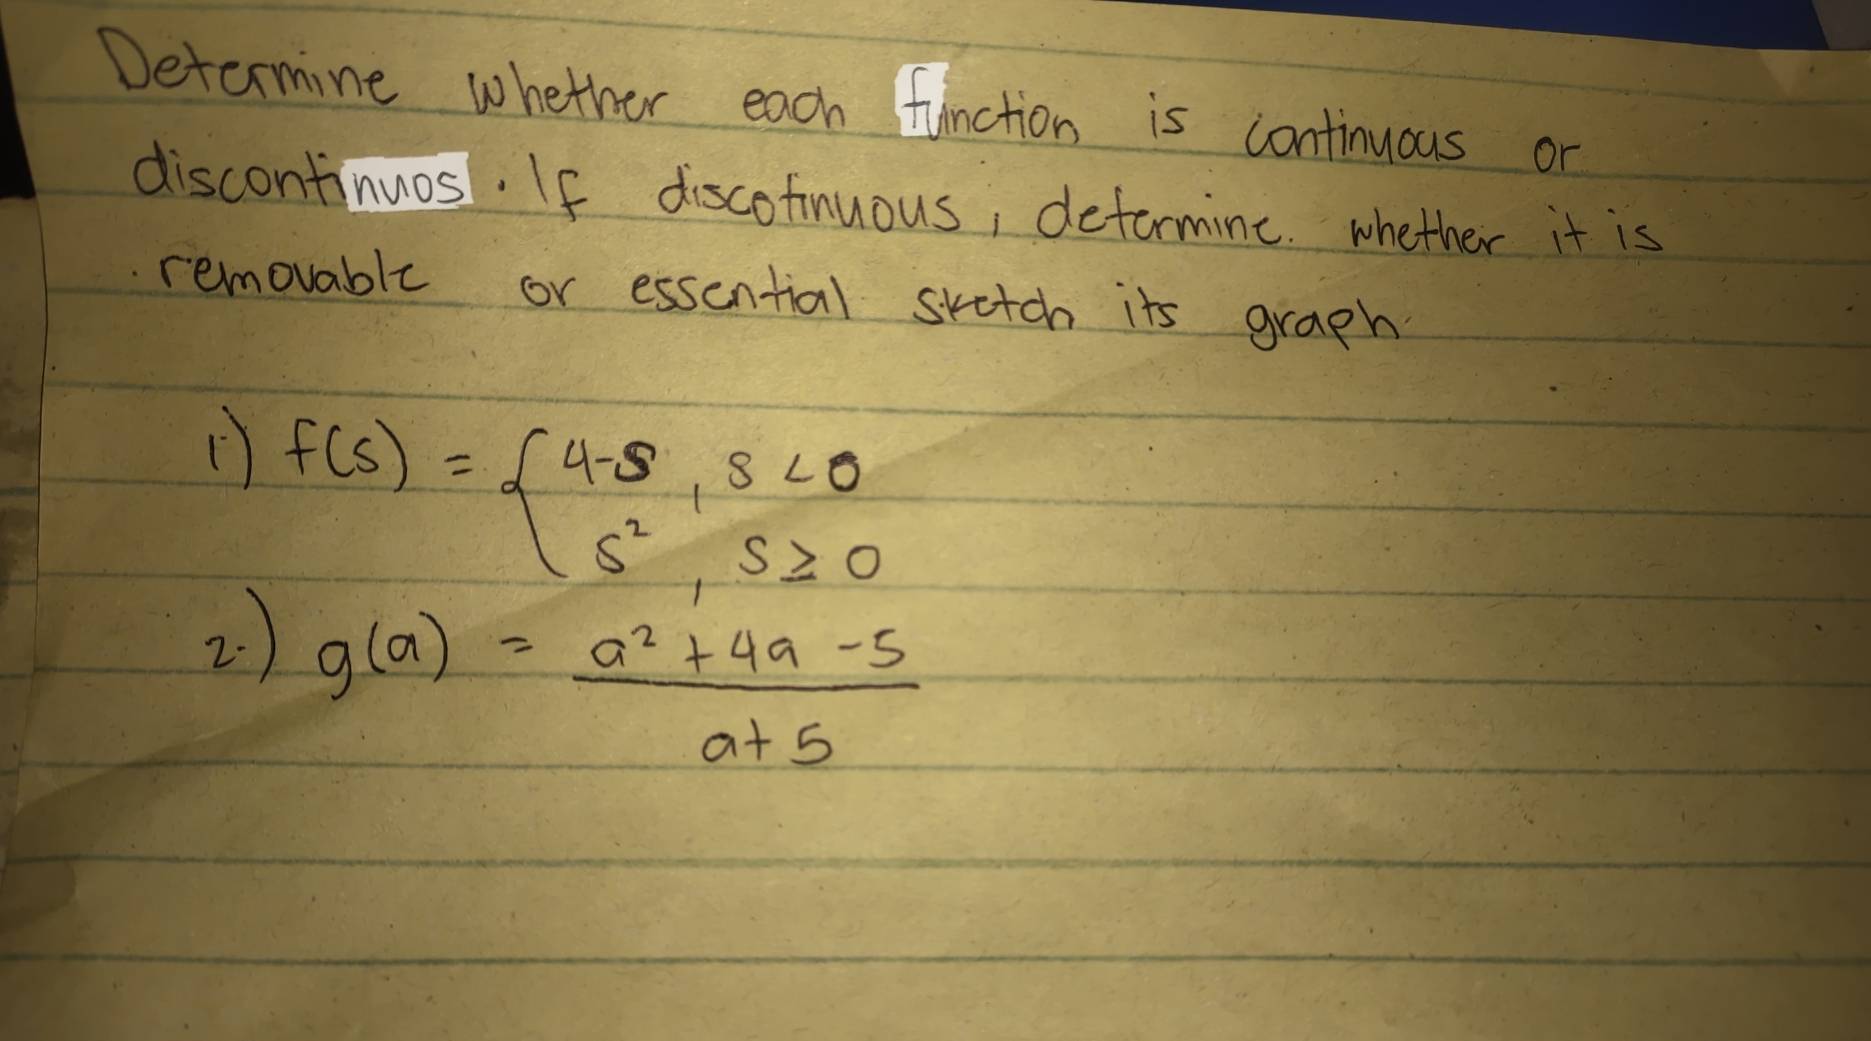 Determine whether each function is continuous or
discontinuos. If discotinuous, determine. whether it is
removable or essential sketch its graph
1.) f(s) = { 4-s , s < 0
s² , s ≥ 0
2.) g(a) = a² + 4a - 5
a + 5